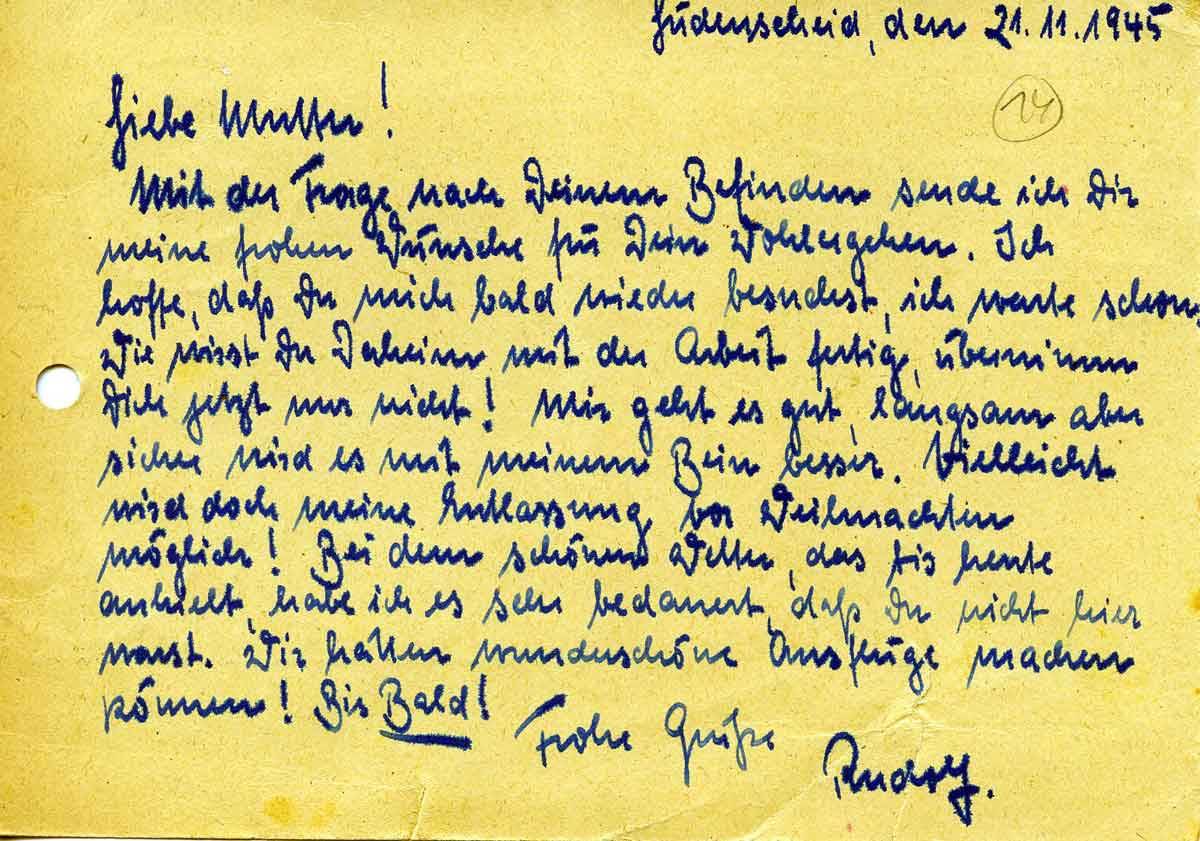 Lüdenscheid, den 21.11.1945
24
Liebe Mutter!
Mit der Frage nach Deinem Befinden sende ich Dir
meine frohen Wünsche für Dein Wohlergehen. Ich
hoffe, daß Du mich bald wieder besuchst, ich warte schon.
Wie wirst Du Daheim mit der Arbeit fertig, übernimm
Dich jetzt nur nicht! Mir geht es gut, langsam aber
sicher wird es mit meinem Bein besser. Vielleicht
wird doch meine Entlassung vor Weihnachten
möglich! Bei dem schönen Wetter, das bis heute
anhielt, habe ich es sehr bedauert, daß Du nicht hier
warst. Wir hätten wunderschöne Ausflüge machen
können! Bis Bald!
Frohe Grüße
Rudolf.